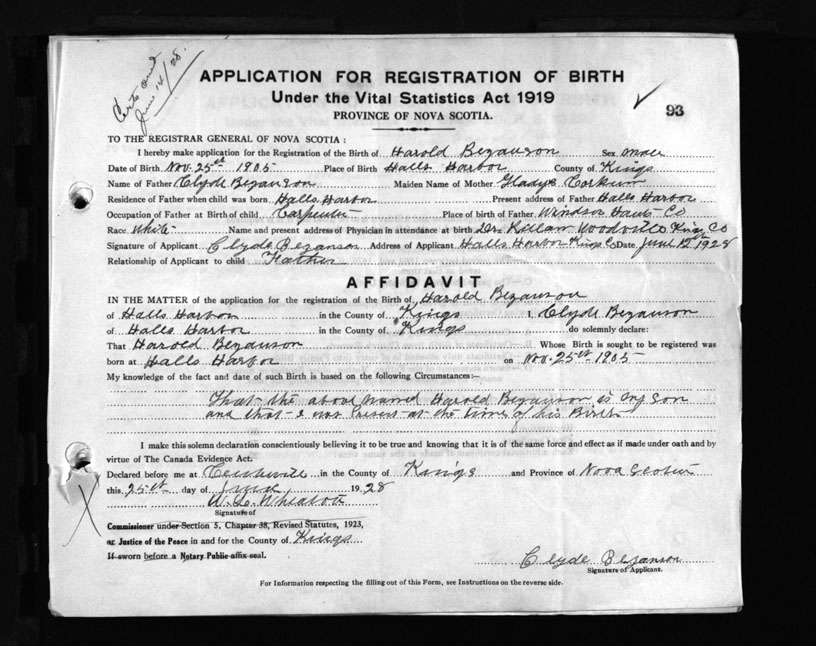 Certs and
June 14/28.
APPLICATION FOR REGISTRATION OF BIRTH
Under the Vital Statistics Act 1919
PROVINCE OF NOVA SCOTIA.
93
TO THE REGISTRAR GENERAL OF NOVA SCOTIA :
I hereby make application for the Registration of the Birth of Harold Bezanson Sex male
Date of Birth Nov. 25st 1905 Place of Birth Halls Harbor County of Kings
Name of Father Clyde Bezanson Maiden Name of Mother Gladys Corkum
Residence of Father when child was born Halls Harbor Present address of Father Halls Harbor
Occupation of Father at Birth of child Carpenter Place of birth of Father Windsor Hants Co
Race White Name and present address of Physician in attendance at birth Dr. Killam Woodville Kings Co
Signature of Applicant Clyde Bezanson Address of Applicant Halls Harbor Kings Co Date June 12 1928
Relationship of Applicant to child Father
AFFIDAVIT
IN THE MATTER of the application for the registration of the Birth of Harold Bezanson
of Halls Harbor in the County of Kings I, Clyde Bezanson
of Halls Harbor in the County of Kings do solemnly declare:
That Harold Bezanson Whose Birth is sought to be registered was
born at Halls Harbor on Nov. 25st 1905
My knowledge of the fact and date of such Birth is based on the following Circumstances:—
That the above named Harold Bezanson is my son
and that I was Present at the time of his Birth
I make this solemn declaration conscientiously believing it to be true and knowing that it is of the same force and effect as if made under oath and by
virtue of The Canada Evidence Act.
Declared before me at in the County of Kings and Province of Nova Scotia
this 25st day of June 1928
W. L. Wheaton
Signature of
Commissioner under Section 5, Chapter 38, Revised Statutes, 1923,
or Justice of the Peace in and for the County of Kings
If sworn before a Notary Public affix seal.
Clyde Bezanson
Signature of Applicant.
For Information respecting the filling out of this Form, see Instructions on the reverse side.